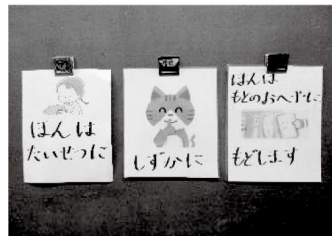 ほんは
たいせつに
しずかに
ほんは
もとのおへやに
もどします